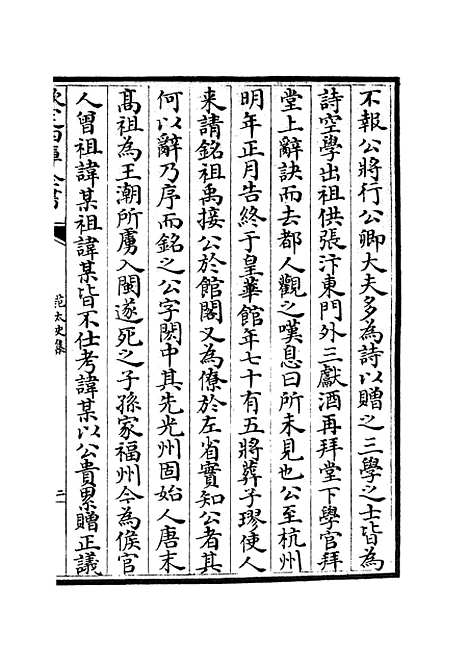 不報公將行公卿大夫多為詩以贈之三學之士皆為
詩空學出祖供張汴東門外三獻酒再拜堂下學官拜
堂上辭訣而去都人觀之嘆息曰所未見也公至杭州
明年正月告終于皇華館年七十有五將葬子璆使人
来請銘祖禹接公於館閣又為僚於左省實知公者其
何以辭乃序而銘之公字閎中其先光州固始人唐末
髙祖為王潮所虜入閩遂死之子孫家福州今為侯官
人曾祖諱某祖諱某皆不仕考諱某以公貴累贈正議
欽定四庫全書
范太史集
二